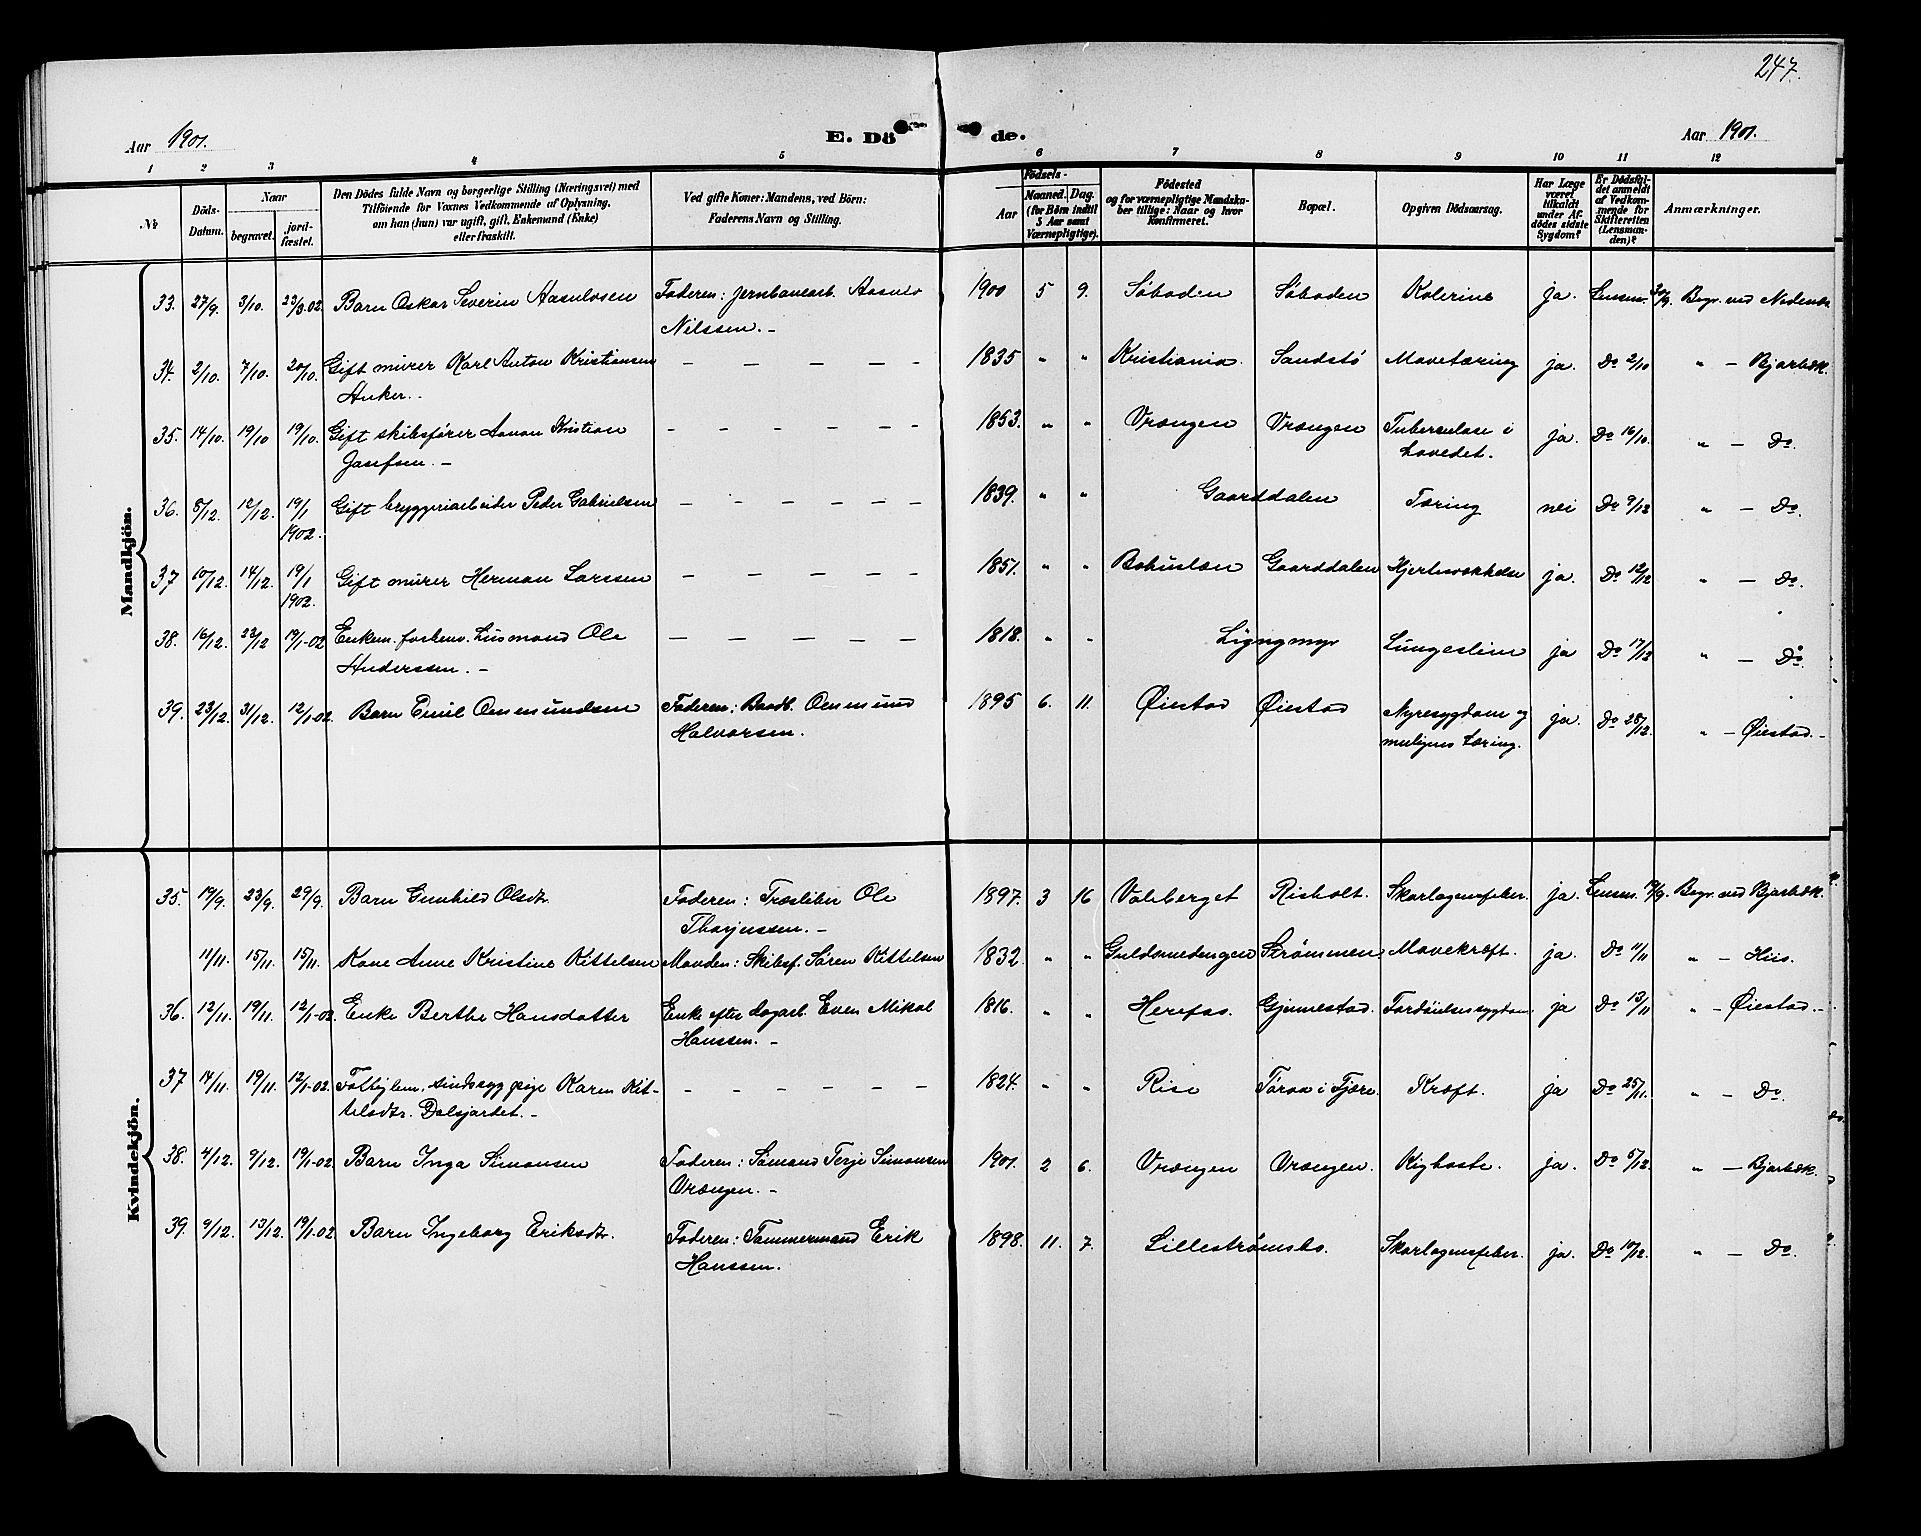 247.
Aar 1901. E. Dö de. Aar 1901.
1 2 3 4 5 6 7 8 9 10 11 12
№
Döds-Datum.
Naar
begravet.
jord-fæstet.
Den Dödes fulde Navn og borgerlige Stilling (Næringsvei) med
Tilföiende for Voxnes Vedkommende af Oplysning,
om han (hun) var ugift, gift, Enkemand (Enke)
eller fraskilt.
Ved gifte Koner: Mandens, ved Börn:
Faderens Navn og Stilling.
Födsels-
Aar
Maaned. Dag.
(for Börn indtil
5 Aar samt
Værnepligtige).
Födested
og for værnepligtige Mandska-
ber tillige: Naar og hvor
Konfirmeret.
Bopæl.
Opgiven Dödsaarsag.
Har Læge
været
tilkaldt
under Af-
dödes sidste
Sygdom?
Er Dödsfal-
det anmeldt
af Vedkom-
mende for
Skifteretten
(Lensman-
den)?
Anmærkninger.
Mandkjön.
33. 27/9. 3/10. Barn Oskar Severin Aasulvsen Faderen: jernbanearb. Aasulv 1900 5 9. Søboden Søboden Kolerine ja. Lensm. 30/9. Begr. ved Nedenæs
Nilssen. –
34. 2/10. 7/10. 20/10. Gift murer Karl Anton Kristiansen – – – – – 1835 " " Kristiania. Sandstø Mavetæring ja. Do 2/10 " – Bjorbæk.
Anker. –
35. 14/10. 19/10 19/10. Gift skibsfører Aanon Kristian – – – – – – 1853. " " Vrængen Vrængen Tuberculose i ja. Do 16/10. " – Do.
Josefsen. – hovedet.
36. 5/12. 12/12. 19/1 1902. Gift bryggeriarbeider Peder Gabrielsen – – – – – 1839. " " Gaarddalen Tæring nei Do 9/12 " – Do.
37 10/12. 14/12. 19/1 1902. Gift murer Herman Larssen – – – – – 1851. " " Bohuslæn Gaarddalen ja. Do 12/12 " – Do.
38. 16/12. 22/12 19/1-02 Enkem. Ole – – – – – 1818. " " Lyngmyr Lungeslim ja Do 17/12 " – Do
Anderssen. –
39. 23/12. 31/12. 12/1-02. Barn Emil Ommundsen Faderen: Baadb. Ommund 1895 6. 11. Øiestad Øiestad Nyresygdom og ja. Do 28/12. " – Øiestad. –
Halvorsen. muligens tæring.
Kvindekjön.
35. 19/9. 23/9. 29/9. Barn Gunhild Olsdtr. Faderen: Træsliber Ole 1897. 3 16 Valeberget Risholt. Skarlagensfeber. ja. Lensm. Begr. ved Bjorbæk.
Thorjussen. –
11/11. 15/11. 15/11. Kone Anne Kristine Kittelsen Manden: Skibsf. Søren Kittelsen 1832. " " Guldsmedengen Strømmen Mavekræft. ja. Do 11/11 " – Hiis.
36. 12/11. 19/11. 12/1-02. Enke Berthe Hansdatter Enke efter dagarb. Even Mikal 1816. " " Herefos. Gjennestad. Fordøielsessygdom ja Do 13/11 " – Øiestad. –
Hanssen. –
37 14/11. 19/11. 12/1-02. Fattiglem, sindssyg pige Karen Kit- – – – – – – 1824. " " Rise Tøraa i Fjære. Kræft. ja Do 25/11. " – Do.
telsdtr. Dalsjordet. –
38. 4/12. 9/12. 19/1-02 Barn Inga Simonsen Faderen: Sømand Terje Simonsen 1901. 2 6. Vrængen Vrængen. Kighoste. ja. Do 5/12. " – Bjorbæk.
Vrængen. –
39. 9/12. 13/12. 19/1-02 Barn Ingeborg Eriksdtr. Faderen: Tømmermand Erik 1898. 11. 7. Lillestrømsbo. Skarlagensfeber. ja. Do 10/12. " – Do.
Hanssen.